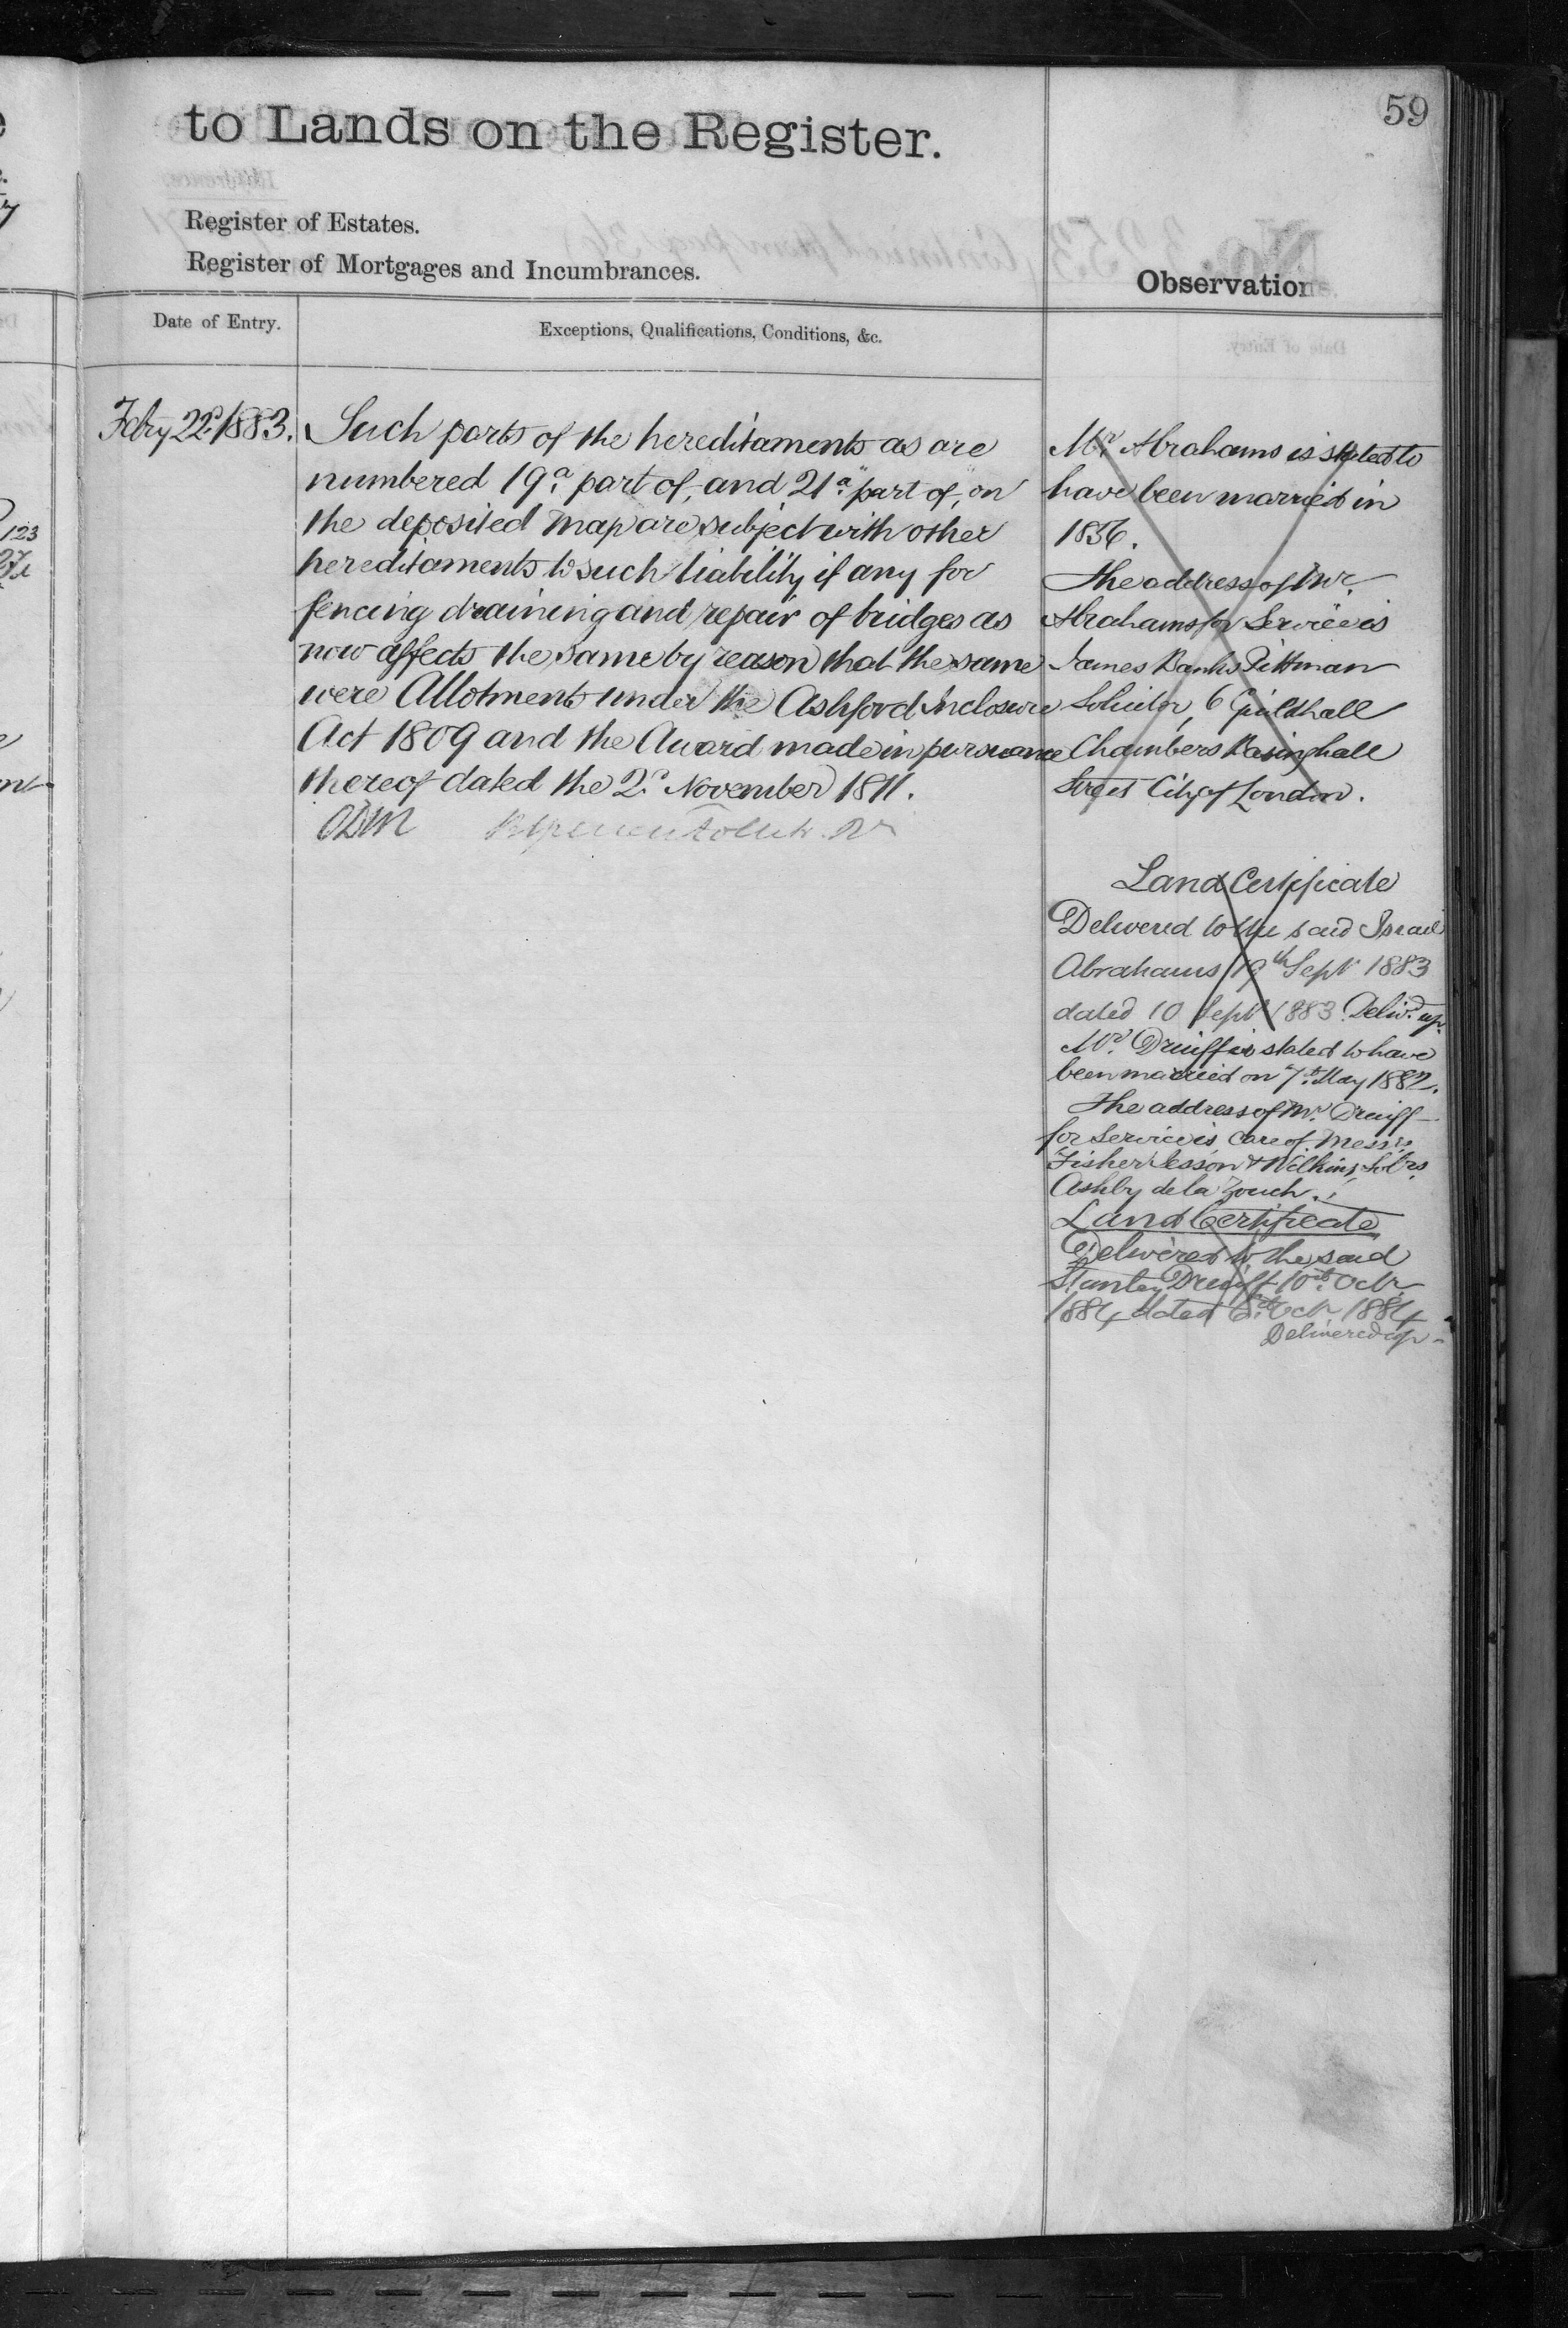 59
to Lands on the Register.
Register of Estates.
Register of Mortgages and Incumbrances.
Observations.
Date of Entry.
Exceptions, Qualifications, Conditions, &c.
Febry 22d 1883.
Such parts of the hereditaments as are
numbered 19a. part of, and 21a. part of, on
the deposited Map are subject with other
hereditaments to such liability if any for
fencing draining and repair of bridges as
now affects the same by reason that the same
were Allotments under the Ashford Inclosure
Act 1809 and the Award made in pursuance
thereof dated the 2d November 1811.
Mr. Abrahams is stated to
have been married in
1856.
The address of Mr.
Abrahams for Service is
James Banks Pittman
Solicitor, 6 Guildhall
Chambers Basinghall
Street City of London.
Land Certificate
Delivered to the said Israel
Abrahams 19th Sept 1883
dated 10 Sept 1883. Delivd. up.
Mr. Druiff is stated to have
been married on 7th May 1882.
The address of Mr. Druiff
for Service is care of Messrs
Fisher Jesson & Wilkins, Solrs.
Ashby de la Zouch.
Land Certificate
Delivered to the said
Stanley Druiff 10th Octr.
1884 dated Octr 1884
Delivered up